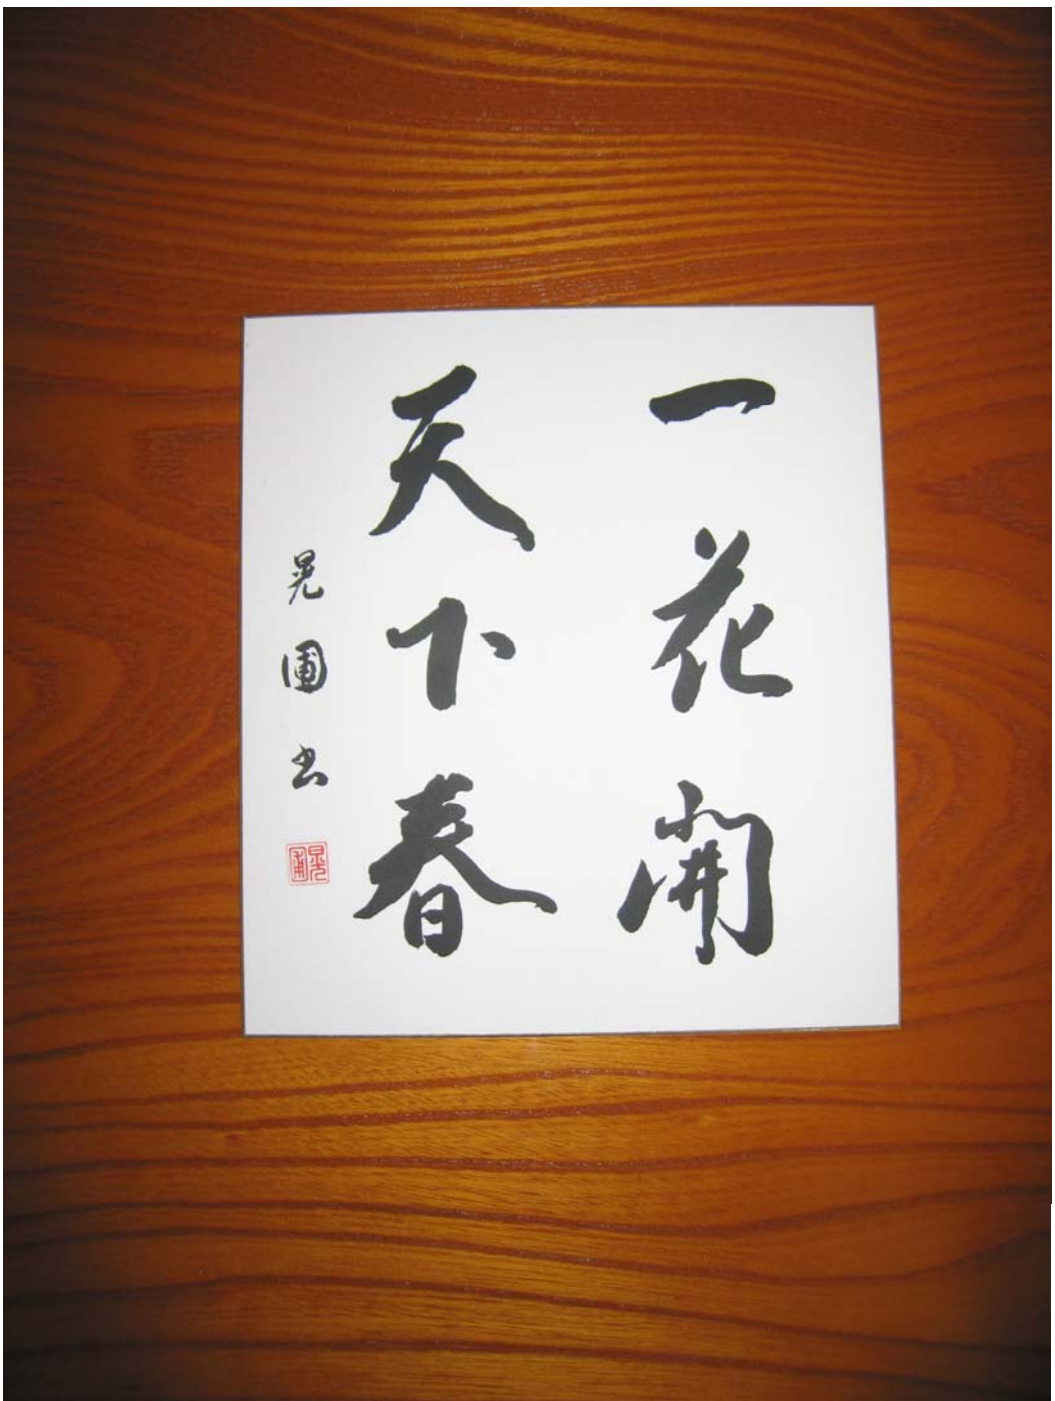 一花開
天下春
晃圃书
晃圃